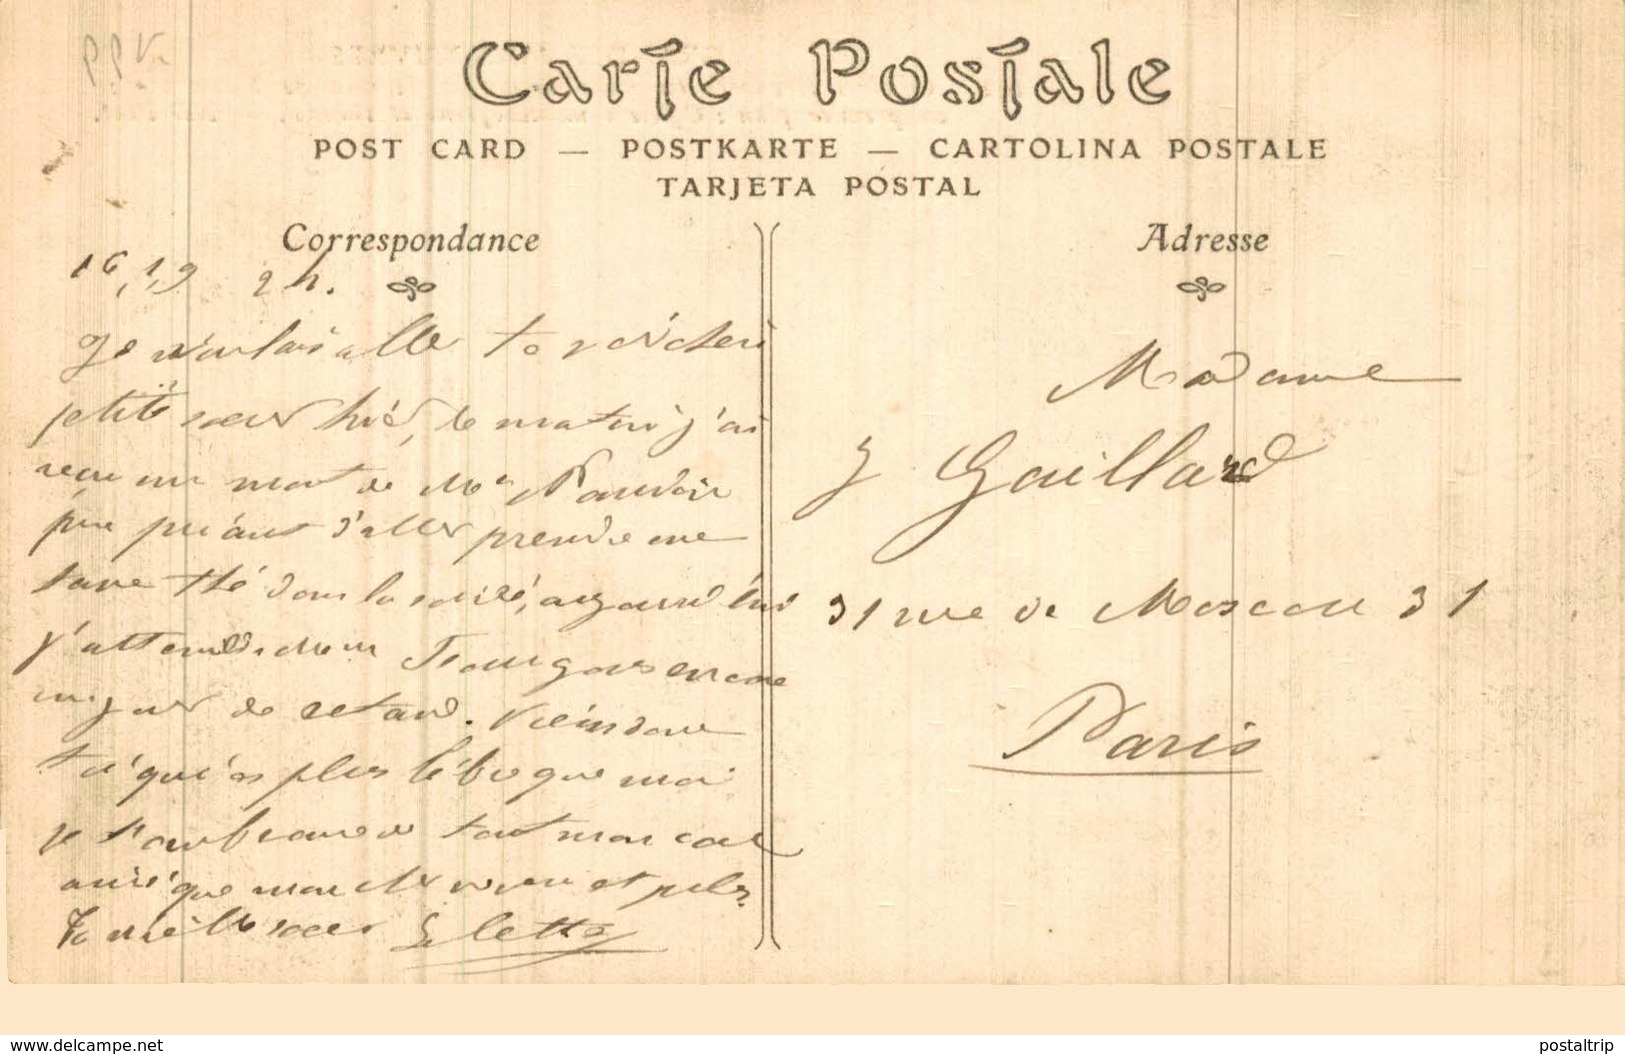 Carte Postale
POST CARD — POSTKARTE — CARTOLINA POSTALE
TARJETA POSTAL
Correspondance
Adresse
16, 1, 9 2 h.
Je voulais aller te voir cheri
petite soeur hier, le matin j'ai
recu un mot de Mr
me priant d'aller prendre une
tasse thé dans la soirée, aujourd'hui
j'attends encore
un jour de retard. Viens donc
toi qui as plus libre que moi
je de tout mon coeur
ainsi que mon cher et
Ta vieille soeur
Madame
J Gaillard
31 rue de Moscou 31
Paris
www.delcampe.net
postaltrip